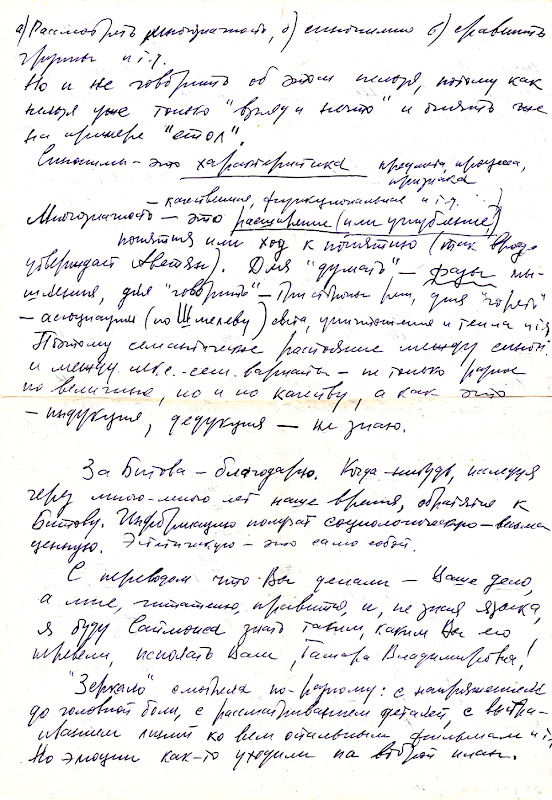 а) Рассмотреть многозначность, б) синонимию в) сравнить
группы и т.д.
Но и не говорить об этом нельзя, потому как
нельзя уже только "взгляд и нечто" и опять же
на примере "стол".
Синонимы – это характеристика предмета, процесса,
признака
– качественная, функциональная и т.д.
Многозначность – это расширение (или углубление)
понятия или ход к понятию (так вроде
утверждает Аветян). Для "думать" – фазы мы-
шления, для "говорить" – три стороны речи, для "гореть"
– ассоциации (по Шмелеву) света, уничтожения и тепла и т.д.
Поэтому семантическое расстояние между синон.
и между лекс.-сем. вариантами – не только разное
по величине, но и по качеству, а как это
– индукция, дедукция – не знаю.
За Битова – благодарю. Когда-нибудь, исследуя
через много-много лет наше время, обратятся к
Битову. Информацию получат социологическую – весьма
ценную. Эстетическую – это само собой.
С переводом что Вы делали – Ваше дело,
а мне, читателю, нравится, и, не зная языка,
я буду Саймонса знать таким, каким Вы его
перевели, исполать Вам, Тамара Владимировна!
"Зеркало" смотрела по-разному: с напряжением
до головной боли, с рассматриванием деталей, с выстра-
иванием линий ко всем остальным фильмам и т.д.
Но эмоции как-то уходили на второй план.